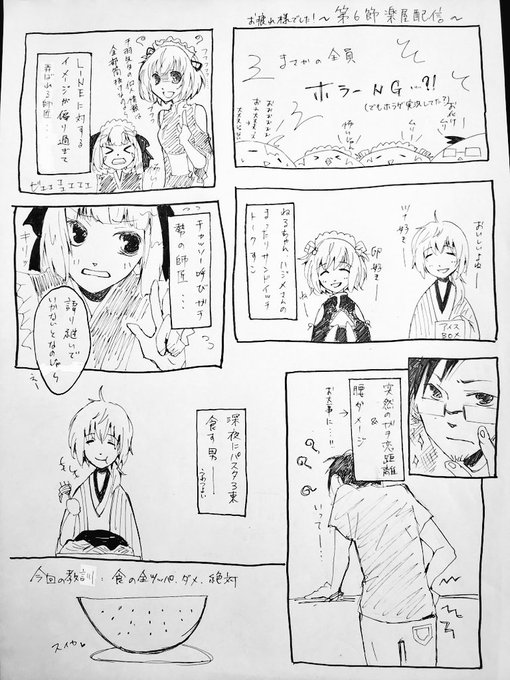 お疲れ様でした！～第6節楽屋配信～
まさかの全員
ホラーNG…?!
(でもホラゲ実況してた?)
おばけ
ムリー
ムリー
怖いよ
おいしいよねー
ツナ好き
卵好き
ねるちゃん ハジメさんの
まったりサンドイッチ
トークすこ
アイス
BOX
突然のガチ恋距離
&
腰ダメージ
↓
お大事に…!!
いってー…!
LINEに対する
イメージが偏り過ぎて
弄ばれる師匠…
チャッソー呼びガチ
勢の師匠…
語り継いで
いかないとなのじゃ
深夜にパスタ3束
食す男ー
つよい
今回の教訓：食の全ツッパ、ダメ、絶対
スイカ